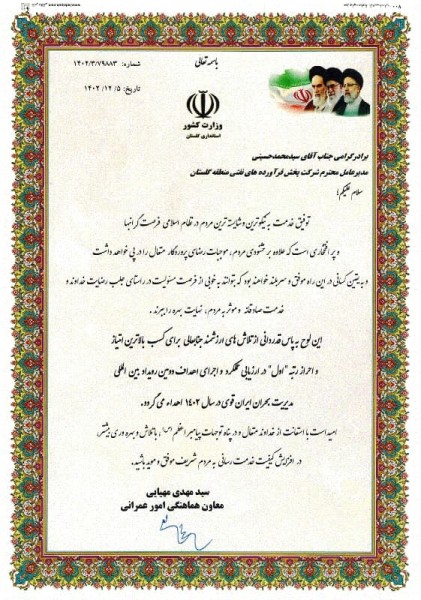 باسمه تعالی
شماره: ۱۴۰۲/۳/۷۹۸۸۳
تاریخ: ۱۴۰۲/۱۲/۵
وزارت کشور
استانداری گلستان
برادر گرامی جناب آقای سیدمحمدحسینی
مدیرعامل محترم شرکت پخش فرآورده های نفتی منطقه گلستان
سلام علیکم؛
توفیق خدمت به نیکوترین و شایسته ترین مردم در نظام اسلامی فرصت گرانبها
و پر افتخاری است که علاوه بر خشنودی مردم، موجبات رضای پروردگار متعال را در پی خواهد داشت
و به یقین کسانی در این راه موفق و سربلند خواهند بود که بتوانند به خوبی از فرصت مسئولیت در راستای جلب رضایت خداوند و
خدمت صادقانه و موثر به مردم، نهایت بهره را ببرند.
این لوح به پاس قدردانی از تلاش های ارزشمند جنابعالی برای کسب بالاترین امتیاز
و احراز رتبه "اول" در ارزیابی عملکرد و اجرای اهداف دومین رویداد بین المللی
مدیریت بحران ایران قوی در سال ۱۴۰۲ اهداء می گردد.
امید است با استعانت از خداوند متعال و در پناه توجهات پیامبر اعظم (ص)، با تلاش و بهره وری بیشتر،
در افزایش کیفیت خدمت رسانی به مردم شریف موفق و موید باشید.
سید مهدی مهیایی
معاون هماهنگی امور عمرانی